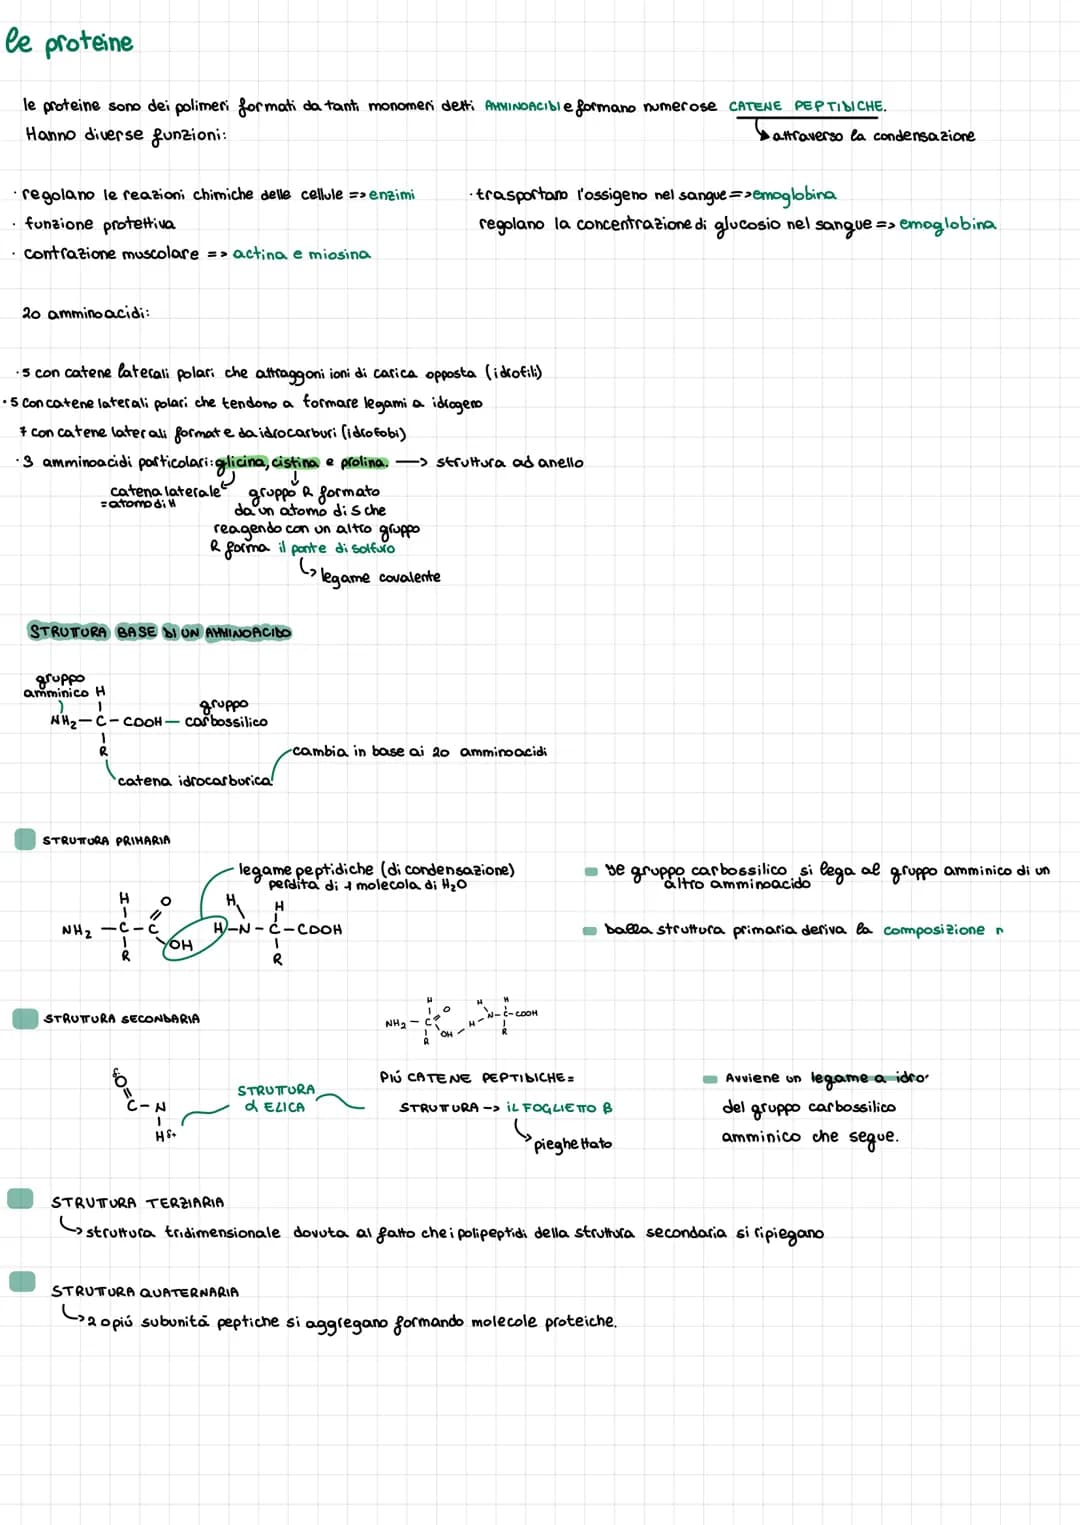 le proteine
le proteine sono dei polimeri formati da tanti monomeri detti AMMINOACIDI e formano numerose CATENE PEPTIDICHE.
attraverso la condensazione
Hanno diverse funzioni:
· regolano le reazioni chimiche delle cellule => enzimi
· funzione protettiva
· contrazione muscolare => actina e miosina
· trasportano l'ossigeno nel sangue => emoglobina
regolano la concentrazione di glucosio nel sangue => emoglobina
20 amminoacidi:
· 5 con catene laterali polari che attraggoni ioni di carica opposta (idrofili)
· 5 con catene laterali polari che tendono a formare legami a idrogeno
7 con catene laterali formate da idrocarburi (idrofobi)
· 3 amminoacidi particolari: glicina, cistina e prolina. —> struttura ad anello
catena laterale
= atomo di H
gruppo R formato
da un atomo di S che
reagendo con un altro gruppo
R forma il ponte di solfuro
legame covalente
STRUTURA BASE DI UN AMMINOACIDO
gruppo
amminico H
NH2 — C — COOH — gruppo carbossilico
R
catena idrocarburica!
cambia in base ai 20 amminoacidi
STRUTTURA PRIMARIA
legame peptidiche (di condensazione)
perdita di 1 molecola di H2O
H O H H
NH2 — C — C H — N — C — COOH
OH
R R
se gruppo carbossilico si lega al gruppo amminico di un
altro amminoacido
dalla struttura primaria deriva la composizione n
STRUTTURA SECONDARIA
H O H H
NH2 — C H — N — C — COOH
OH
R R
O
C — N
H δ+
STRUTTURA
α ELICA
PIÚ CATENE PEPTIDICHE =
STRUTTURA -> IL FOGLIETTO B
pieghettato
Avviene un legame a idro
del gruppo carbossilico
amminico che segue.
STRUTTURA TERZIARIA
struttura tridimensionale dovuta al fatto che i polipeptidi della struttura secondaria si ripiegano
STRUTTURA QUATERNARIA
2 o piú subunitá peptiche si aggregano formando molecole proteiche.